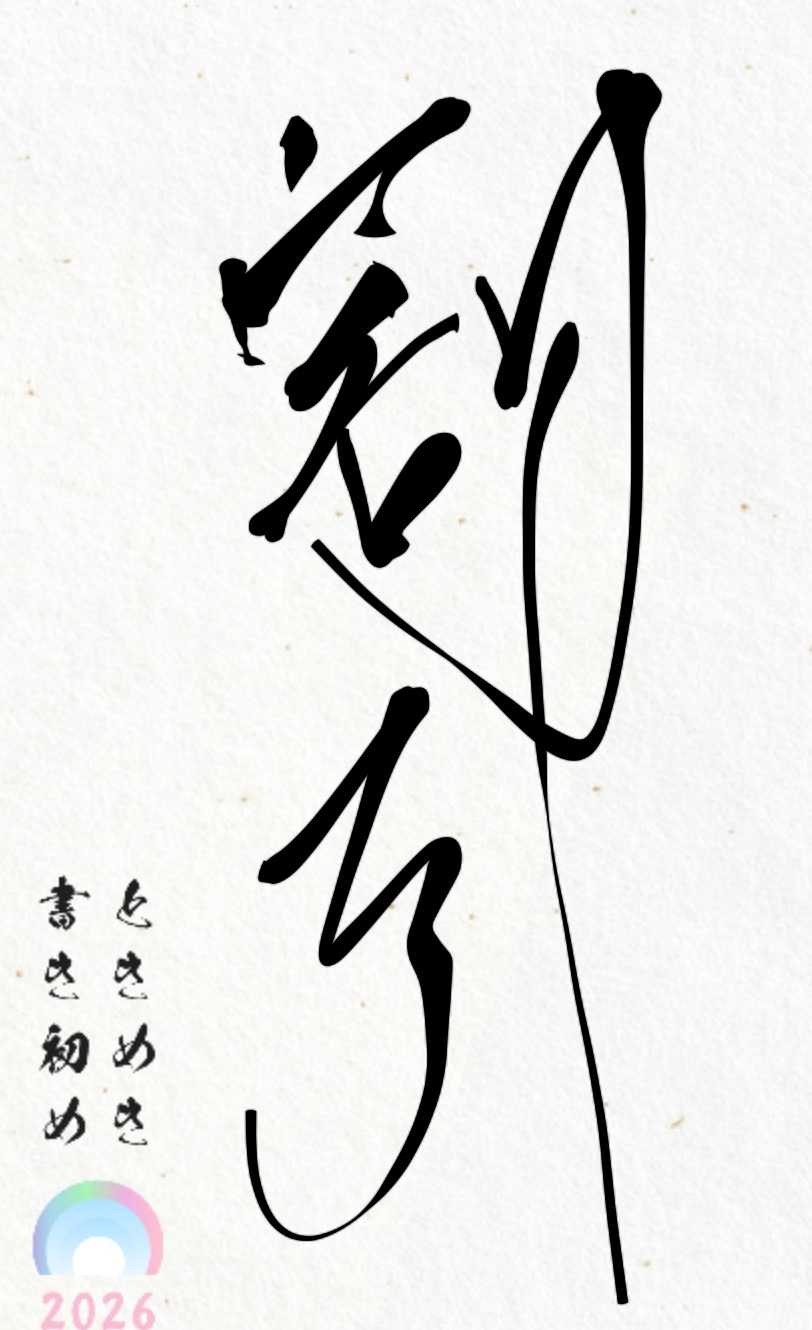 割引
ときめき
書き初め
2026